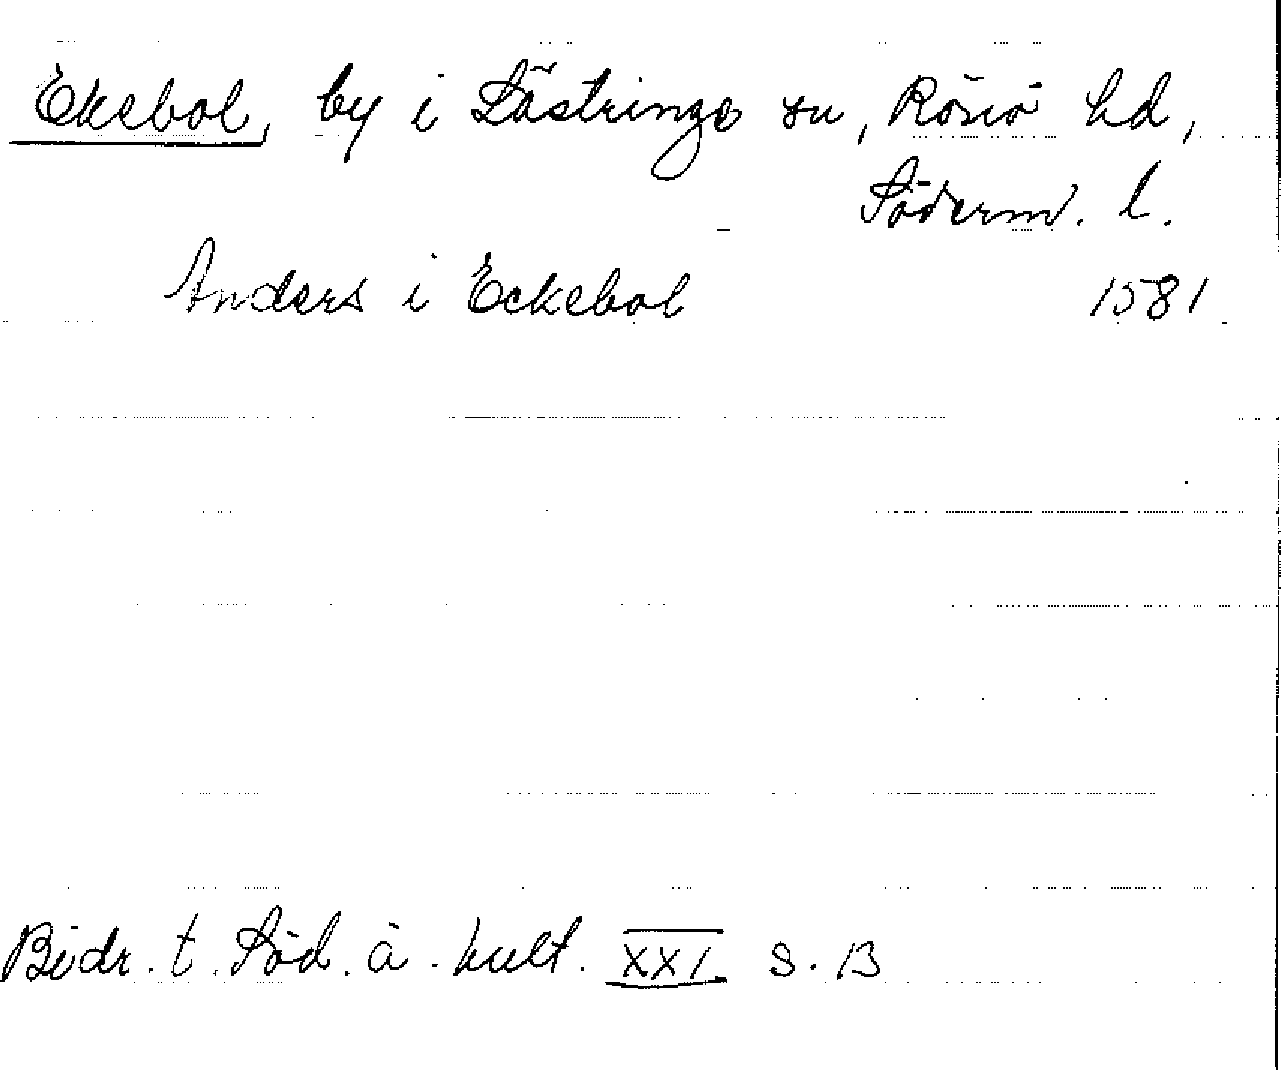 Ekebol, by i Lästringe sn, Rönö hd,
Söderm. l.
Anders i Eckebol 1581
Bidr. t. Söd. ä. kult. XXI s. 13